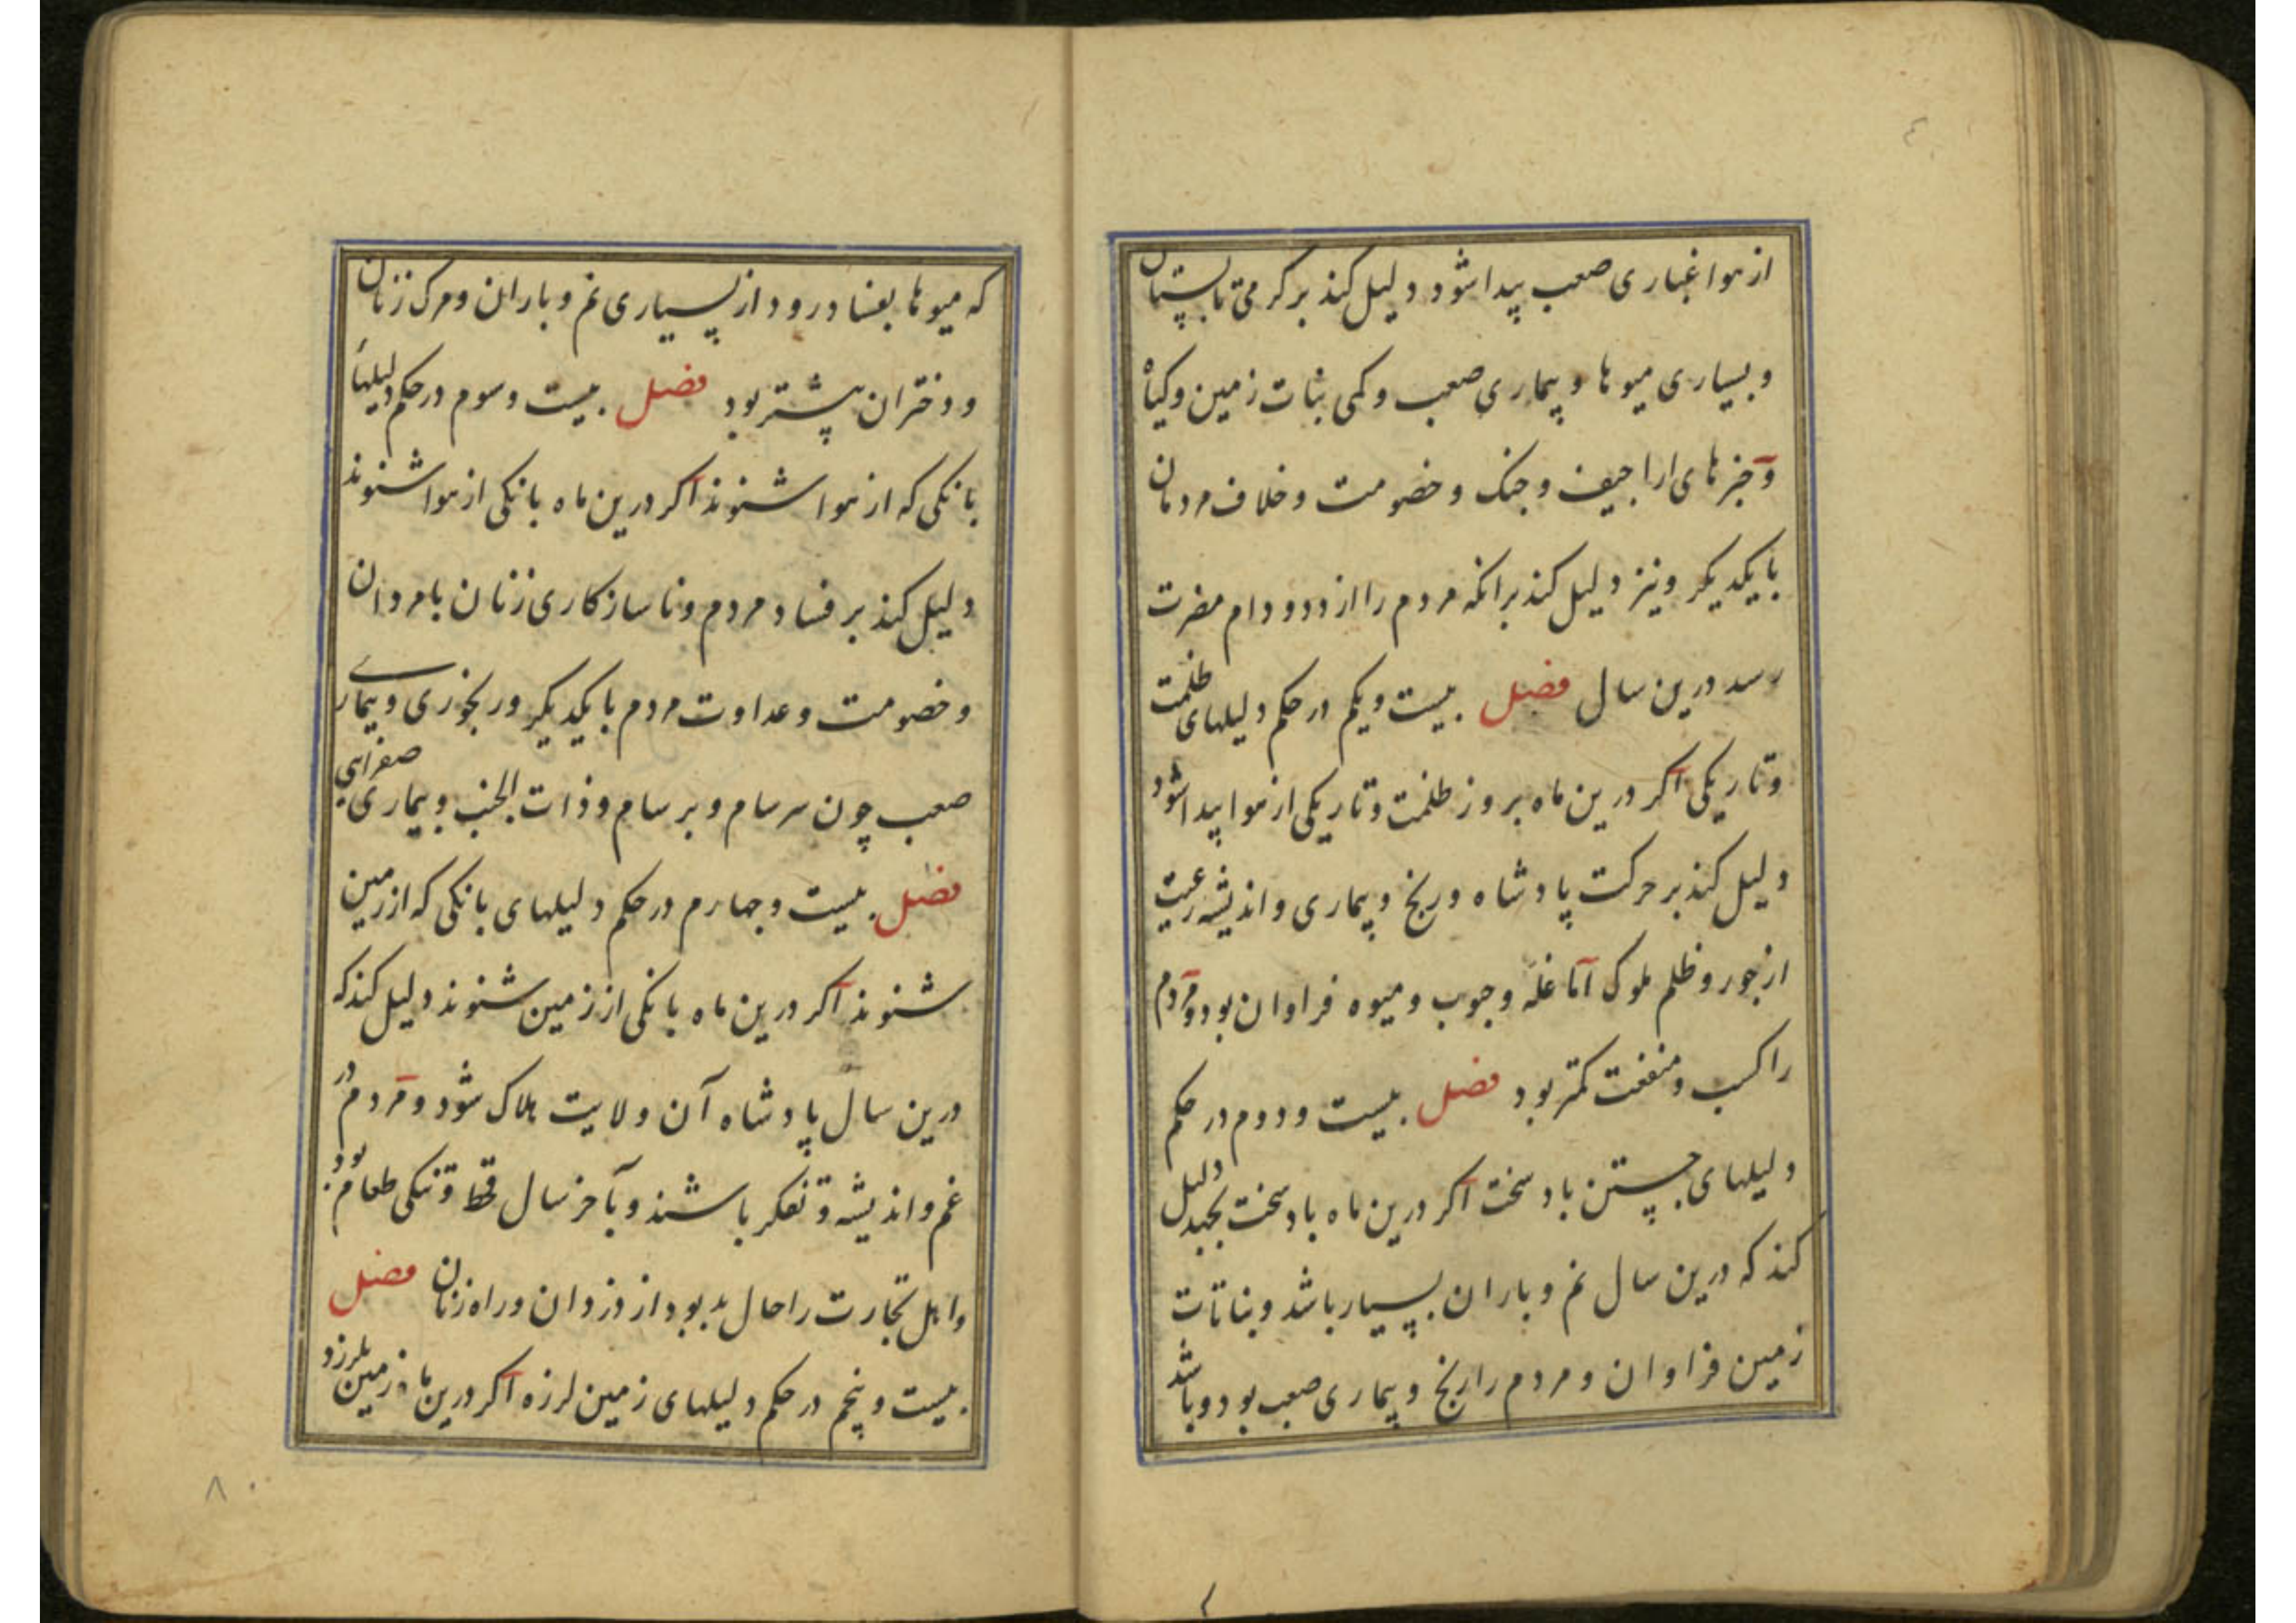 از هوا غباری صعب پیدا شود دلیل کند بر گرمی تابستان
و بسیاری میوها و بیماری صعب و کمی نبات زمین و کیاه
و خبرهای اراجیف و جنک و خصومت و خلاف مردمان
با یکدیکر و نیز دلیل کند بر انکه مردم را از دد و دام مضرت
رسد درین سال فصل بیست و یکم در حکم دلیلهای ظلمت
و تاریکی اکر درین ماه بروز ظلمت و تاریکی از هوا پیدا شود
دلیل کند بر حرکت پادشاه و رنج و بیماری و اندیشه رعیت
از جور و ظلم ملوک اما غله و حبوب و میوه فراوان بود و مردم
را کسب و منفعت کمتر بود فصل بیست و دوم در حکم
دلیلهای جستن باد سخت اکر درین ماه باد سخت بجهد دلیل
کند که درین سال نم و باران بسیار باشد و نباتات
زمین فراوان و مردم را رنج و بیماری صعب بود و باشد
که میوها بفساد رود از بسیاری نم و باران و مرک زنان
و دختران بیشتر بود فصل بیست و سوم در حکم دلیلهاء
بانکی که از هوا شنوند اکر درین ماه بانکی از هوا شنوند
دلیل کند بر فساد مردم و ناسازکاری زنان با مردان
و خصومت و عداوت مردم با یکدیکر و رنجوری و بیماری
صعب چون سرسام و برسام و ذات الجنب و بیماری صفرایی
فصل بیست و جهارم در حکم دلیلهای بانکی که از زمین
شنوند اکر درین ماه بانکی از زمین شنوند دلیل کند که
درین سال پادشاه آن ولایت هلاک شود و مردم در
غم و اندیشه و تفکر باشند و بآخر سال قحط و تنکی طعام بود
و اهل تجارت را حال بد بود از دزدان و راه زنان فصل
بیست و پنجم در حکم دلیلهای زمین لرزه اکر درین ماه زمین بلرزد
۸۰